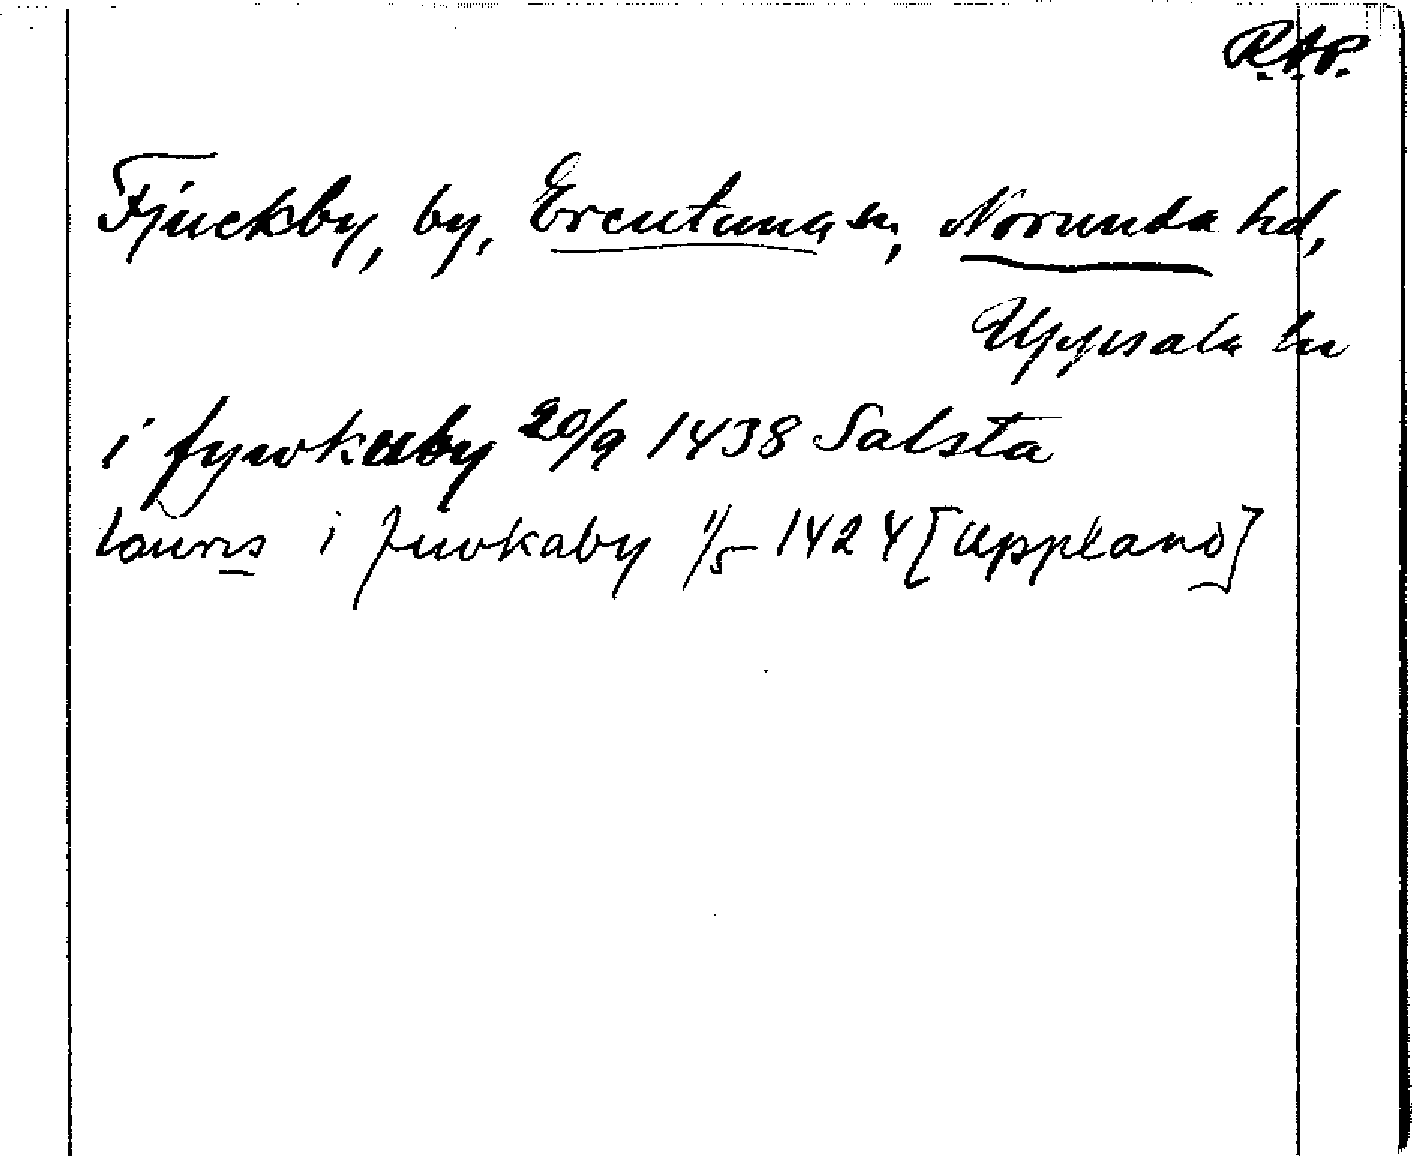 R.A.P.
Fjuckby, by, Ärentuna sn, Norunda hd,
Uppsala län
i fywkaby 20/9 1438 Salsta
lauris i fiwkaby 11/5 1424 [Uppland]